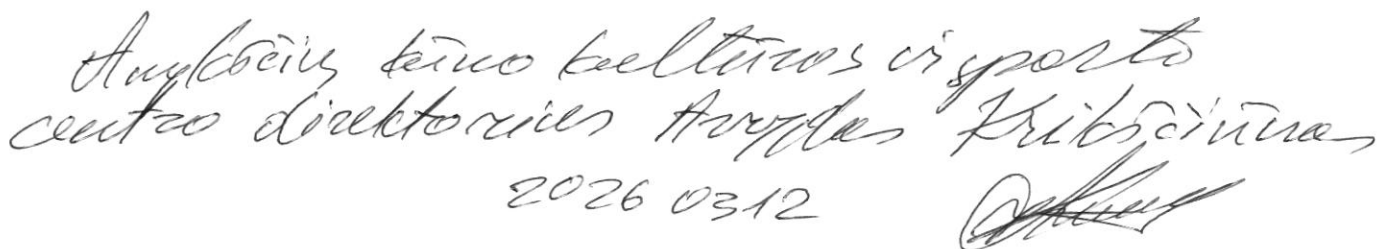 Anykščių kūno kultūros ir sporto
centro direktorius Arvydas Krikščiūnas
2026 03 12